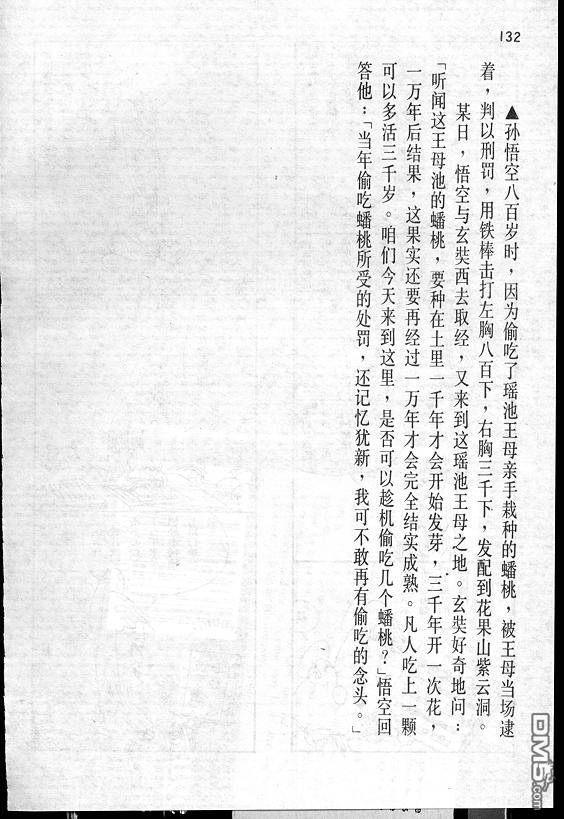 132
▲孙悟空八百岁时，因为偷吃了瑶池王母亲手栽种的蟠桃，被王母当场逮
着，判以刑罚，用铁棒击打左胸八百下，右胸三千下，发配到花果山紫云洞。
某日，悟空与玄奘西去取经，又来到这瑶池王母之地。玄奘好奇地问：
「听闻这王母池的蟠桃，要种在土里一千年才会开始发芽，三千年开一次花，
一万年后结果，这果实还要再经过一万年才会完全结实成熟。凡人吃上一颗
可以多活三千岁。咱们今天来到这里，是否可以趁机偷吃几个蟠桃？」悟空回
答他：「当年偷吃蟠桃所受的处罚，还记忆犹新，我可不敢再有偷吃的念头。」
DM5.com